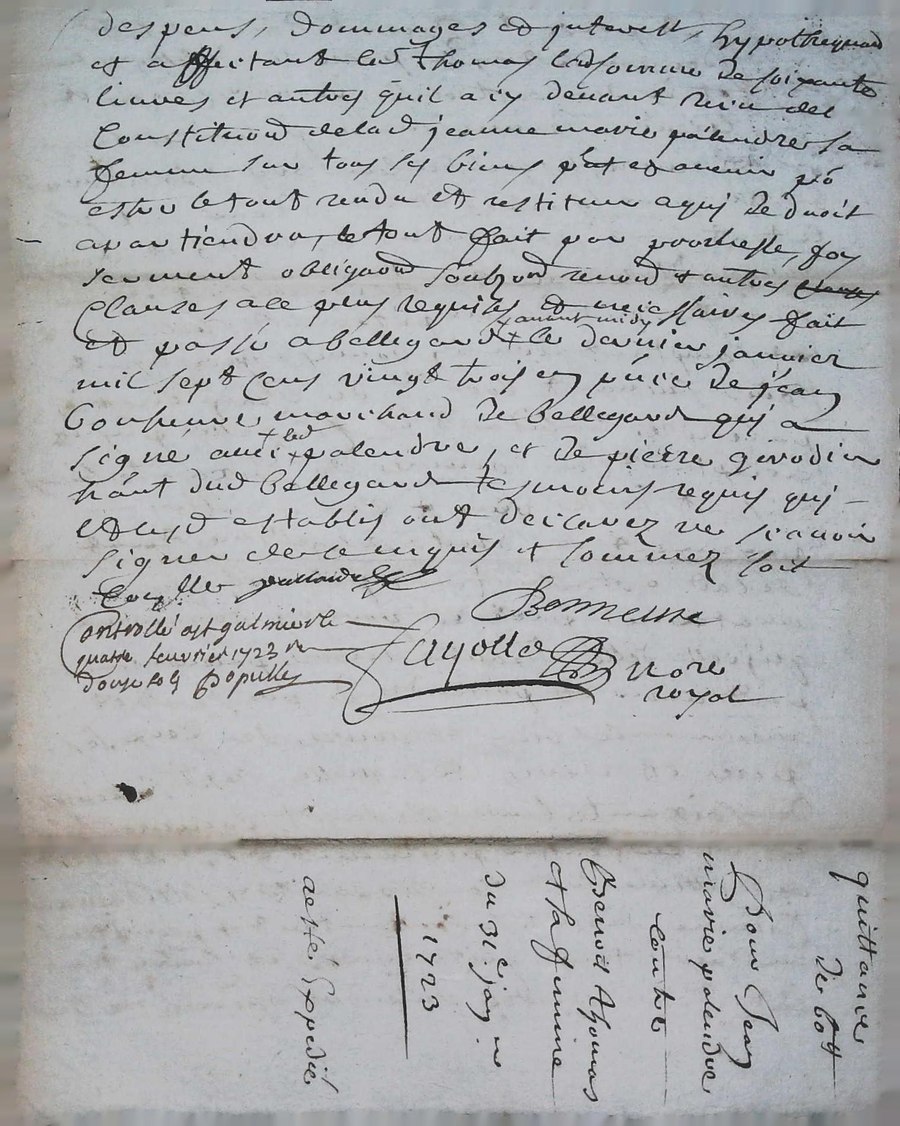 despens, dommages et interest, hypothequand
et affectant led Thomas lad somme de soixante
livres et autres quil a cy devant receu des
Constituond delad jeanne marie palendre sa
femme sur tous ses biens pnt et avenir po
estre le tout rendu et restitue a qui de droit
apartiendra, le tout fait par promesse, foy
serment obligaon soubzon renon & autres
Clauses a ce plus requises et necessaires fait
et passé a bellegarde + le dernier janvier
avant midy
mil sept cens vingt trois en pnce de jean
bonnevie marchand de bellegarde qui a
signé avec lad palendre, et de pierre girodin
hant dud bellegarde tesmoins requis qui
et lesd establis ont declarez ne scavoir
signer de ce enquis & sommez soit
Controllé
Bonnevie
Controllé a st galmier le
quatre fevrier 1723 re
douze sols
Fayolle
Nore
royal
quittance
de 60 ll
Pour Jean
marie palendre
Contre
Benoit Thomas
et sa femme
du 31e janv
1723
a esté Expedié